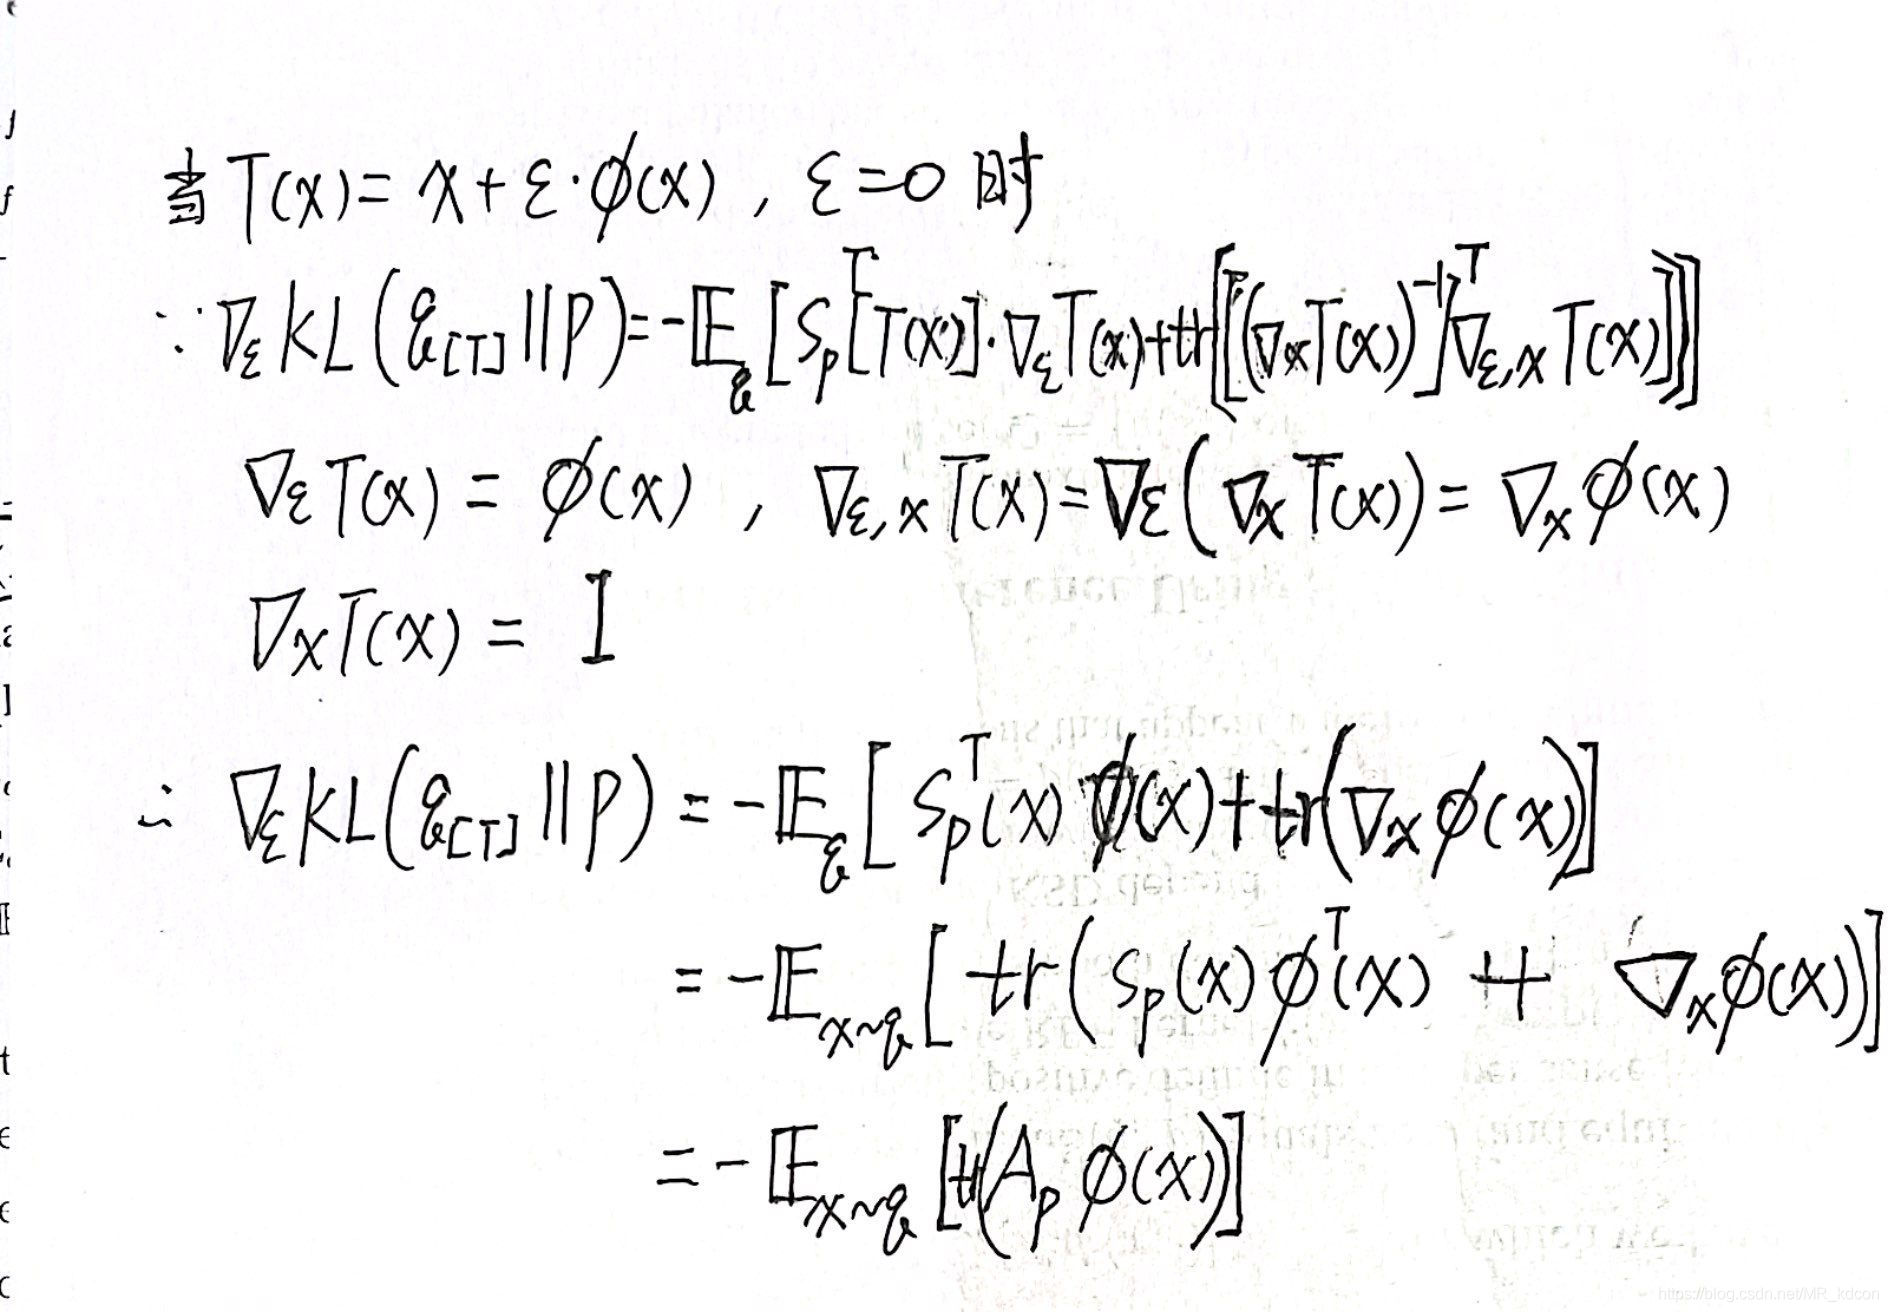 当 T(x) = x + ε·φ(x) , ε=0 时
∵ ∇_ε KL(q_[T] || p) = -𝔼_q [S_p^T[T(x)]·∇_ε T(x) + tr[[(∇_x T(x))^{-1}]^T ∇_{ε,x} T(x)]]
∇_ε T(x) = φ(x) , ∇_{ε,x} T(x) = ∇_ε (∇_x T(x)) = ∇_x φ(x)
∇_x T(x) = I
∴ ∇_ε KL(q_[T] || p) = -𝔼_q [S_p^T(x) φ(x) + tr(∇_x φ(x))]
= -𝔼_{x~q} [tr(S_p(x) φ^T(x) + ∇_x φ(x))]
= -𝔼_{x~q} [tr(A_p φ(x))]
https://blog.csdn.net/MR_kdcon